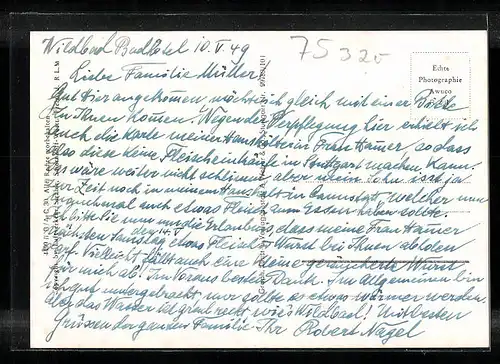 Wildbad Badhotel 10.V.49
75 320
Echte
Photographie
Awuco
Liebe Familie Müller!
Gut hier angekommen möchte ich gleich mit einer Bitte
zu Ihnen kommen. Wegen der Verpflegung hier erhielt ich
auch die Karte meiner Haushälterin Frau Hamer, so dass
also diese keine Fleischeinkäufe in Stuttgart machen kann.
Es wäre weiter nicht schlimm, aber mein Sohn ist ja
zur Zeit noch in meinem Haushalt in Cannstatt, welcher nun
manchmal auch etwas Fleisch zum Essen haben sollte.
bitte Sie nun um die Erlaubnis, dass meine Frau Hamer
nächsten Samstag den 14.V. etwas Fleisch u. Wurst bei Ihnen abholen
darf. Vielleicht fällt auch eine kleine geräucherte Wurst
für mich ab! Im Voraus besten Dank. Im Allgemeinen bin
ich gut untergebracht, nur sollte es etwas wärmer werden.
Aber das Wasser ist grad recht, wie's Wildbad! Mit besten
Grüssen der ganzen Familie Ihr Robert Nagel